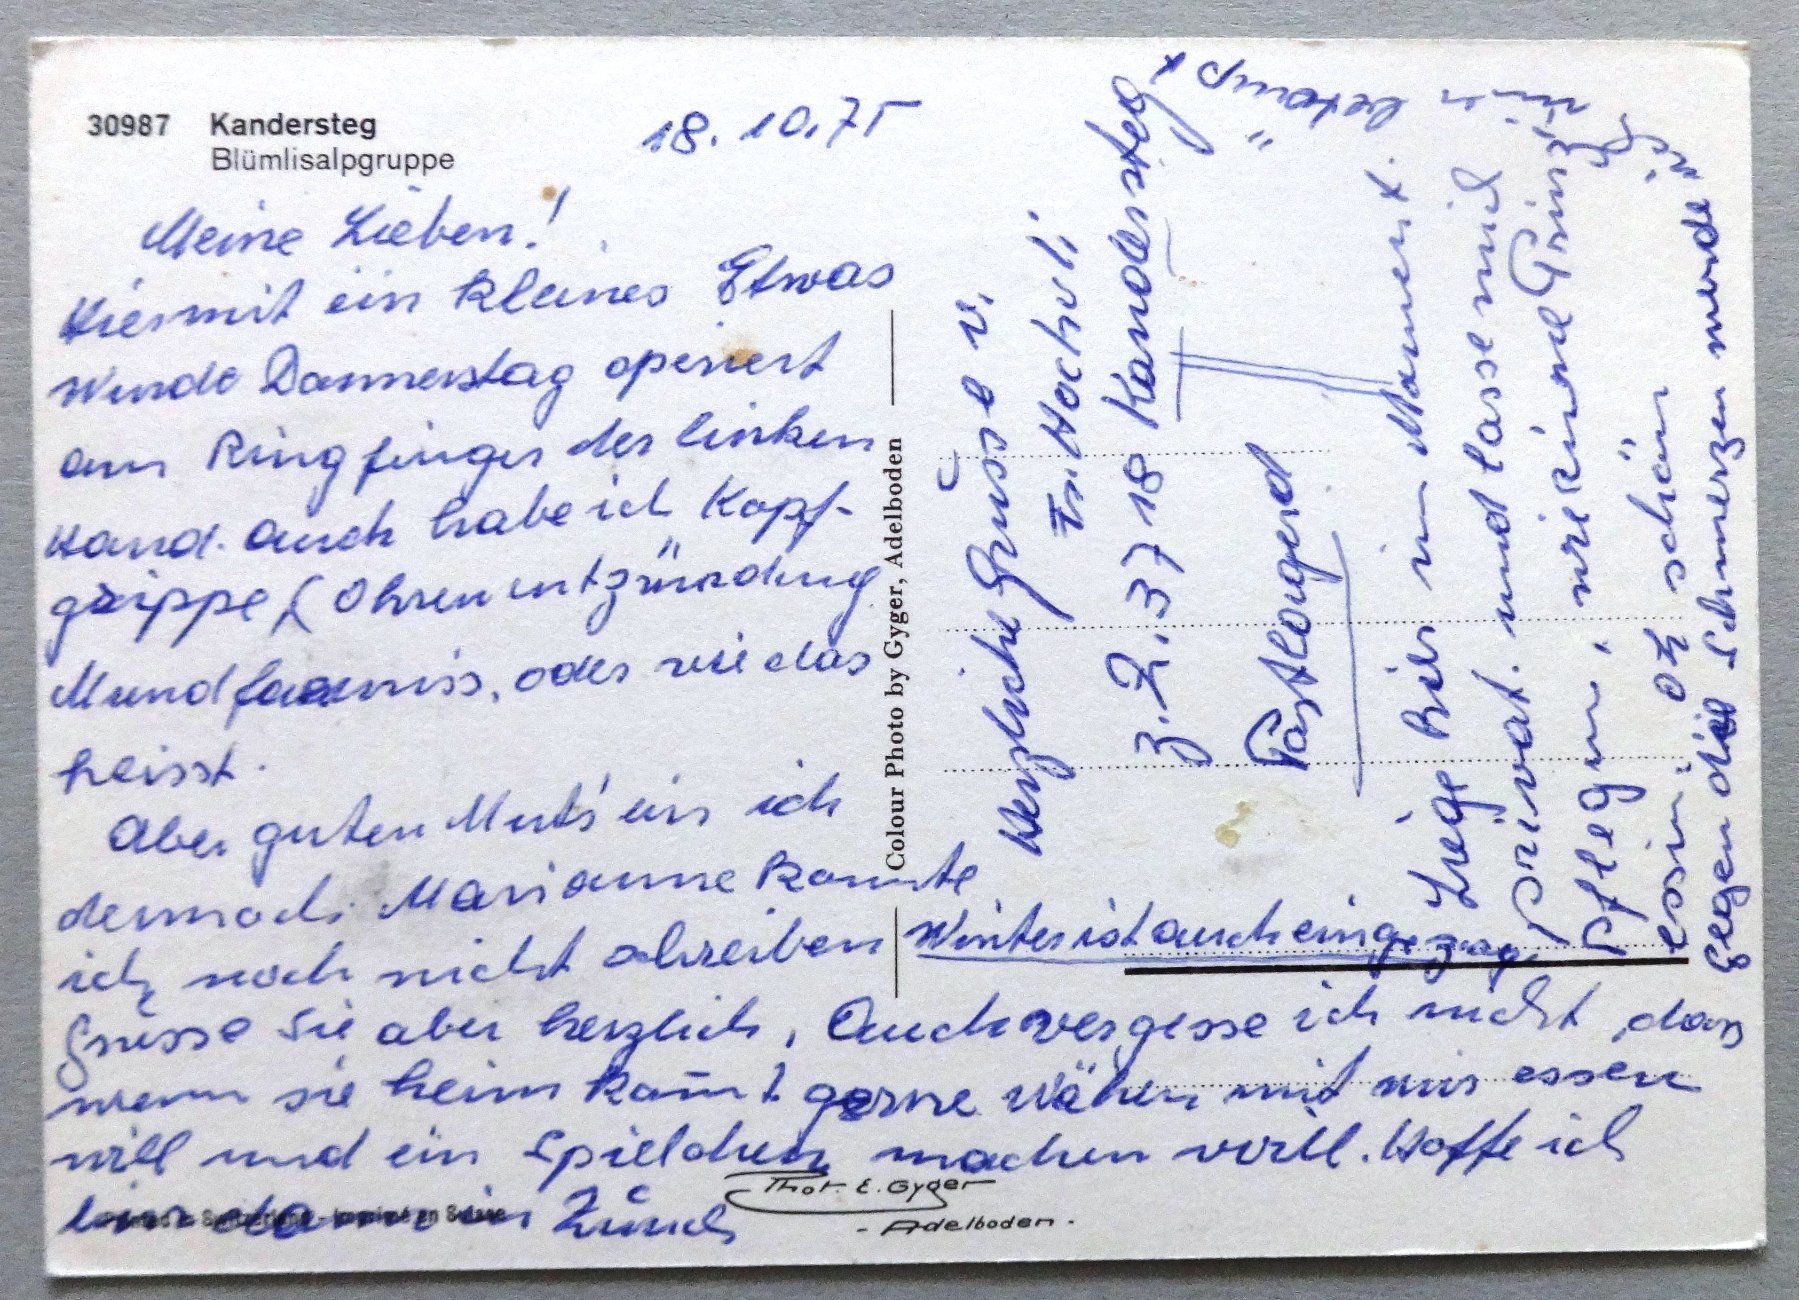 30987 Kandersteg
Blümlisalpgruppe
18.10.75
Meine Lieben!
Hiermit ein kleines Etwas
Wurde Donnerstag operiert
am Ringfinger der linken
Hand. Auch habe ich Kopf-
grippe, (Ohrenentzündung
Mund oder wie das
heisst.
Aber guten Mut's bin ich
dennoch. Marianne konnte
ich noch nicht schreiben
Grüsse Sie aber herzlich, Auch vergesse ich nicht, dass
wenn sie heim kom̄t gerne Wähen mit mir essen
will und ein Spielchen machen will. Hoffe ich
bin dann in Zürich
Winter ist auch eingezog.
Herzliche Grüsse v.
Hochuli
z. Z. 3718 Kandersteg
Postlagernd
Liege hier im Moment.
privat. und lasse mich
pflegen, wie eine Prinz
essin, oh schön
gegen die Schmerzen wurde
mir
Colour Photo by Gyger, Adelboden
Phot. E. Gyger
- Adelboden -